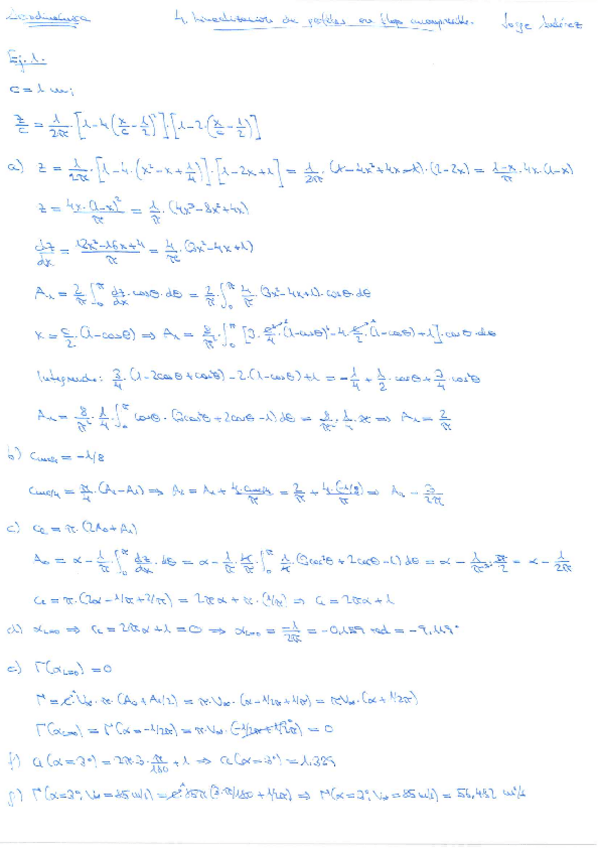 Aerodinámica 4. Linealización de perfiles en flujo incompresible. Jorge
Ej. 1.
c = 1 m;
z/c = 1/2π · [1 − 4(x/c − 1/2)²] · [1 − 2·(x/c − 1/2)]
a) z = 1/2π · [1 − 4·(x² − x + 1/4)] · [1 − 2x + 1] = 1/2π · (1 − 4x² + 4x − 1)·(2 − 2x) = (1−x)/π · 4x·(1−x)
z = 4x·(1−x)²/π = 1/π · (4x³ − 8x² + 4x)
dz/dx = (12x² − 16x + 4)/π = 4/π · (3x² − 4x + 1)
A₁ = 2/π ∫₀^π dz/dx · cosθ · dθ = 2/π · ∫₀^π 4/π · (3x² − 4x + 1) · cosθ dθ
x = c/2 · (1 − cosθ) ⇒ A₁ = 8/π² · ∫₀^π [3 · c²/4 · (1 − cosθ)² − 4 · c/2 · (1 − cosθ) + 1] · cosθ dθ
Integrando: 3/4 · (1 − 2cosθ + cos²θ) − 2·(1 − cosθ) + 1 = −1/4 + 1/2 · cosθ + 3/4 · cos²θ
A₁ = 8/π² · 1/4 ∫₀^π cosθ · (3cos²θ + 2cosθ − 1) dθ = 8/π² · 1/4 · π ⇒ A₁ = 2/π
b) c_mc/4 = −1/8
c_mc/4 = π/4 · (A₂ − A₁) ⇒ A₂ = A₁ + 4·c_mc/4/π = 2/π + 4·(−1/8)/π ⇒ A₂ = 3/2π
c) c_l = π · (2A₀ + A₁)
A₀ = α − 1/π ∫₀^π dz/dx · dθ = α − 1/π · 4/π · ∫₀^π 1/4 · (3cos²θ + 2cosθ − 1) dθ = α − 1/π² · π/2 = α − 1/2π
c_l = π · (2α − 1/π + 2/π) = 2πα + π · (1/π) ⇒ c_l = 2πα + 1
d) α_L=0 ⇒ c_l = 2πα + 1 = 0 ⇒ α_L=0 = −1/2π = −0,159 rad = −9,119°
e) Γ(α_L=0) = 0
Γ = c · V∞ · π · (A₀ + A₁/2) = π · V∞ · (α − 1/2π + 1/π) = πV∞ · (α + 1/2π)
Γ(α_L=0) = Γ(α = −1/2π) = π·V∞ · (−1/2π + 1/2π) = 0
f) c_l(α = 3°) = 2π · 3 · π/180 + 1 ⇒ c_l(α = 3°) = 1,329
g) Γ(α = 3°, V∞ = 85 m/s) = c · 85π (3·π/180 + 1/2π) ⇒ Γ(α = 3°, V∞ = 85 m/s) = 56,482 m²/s